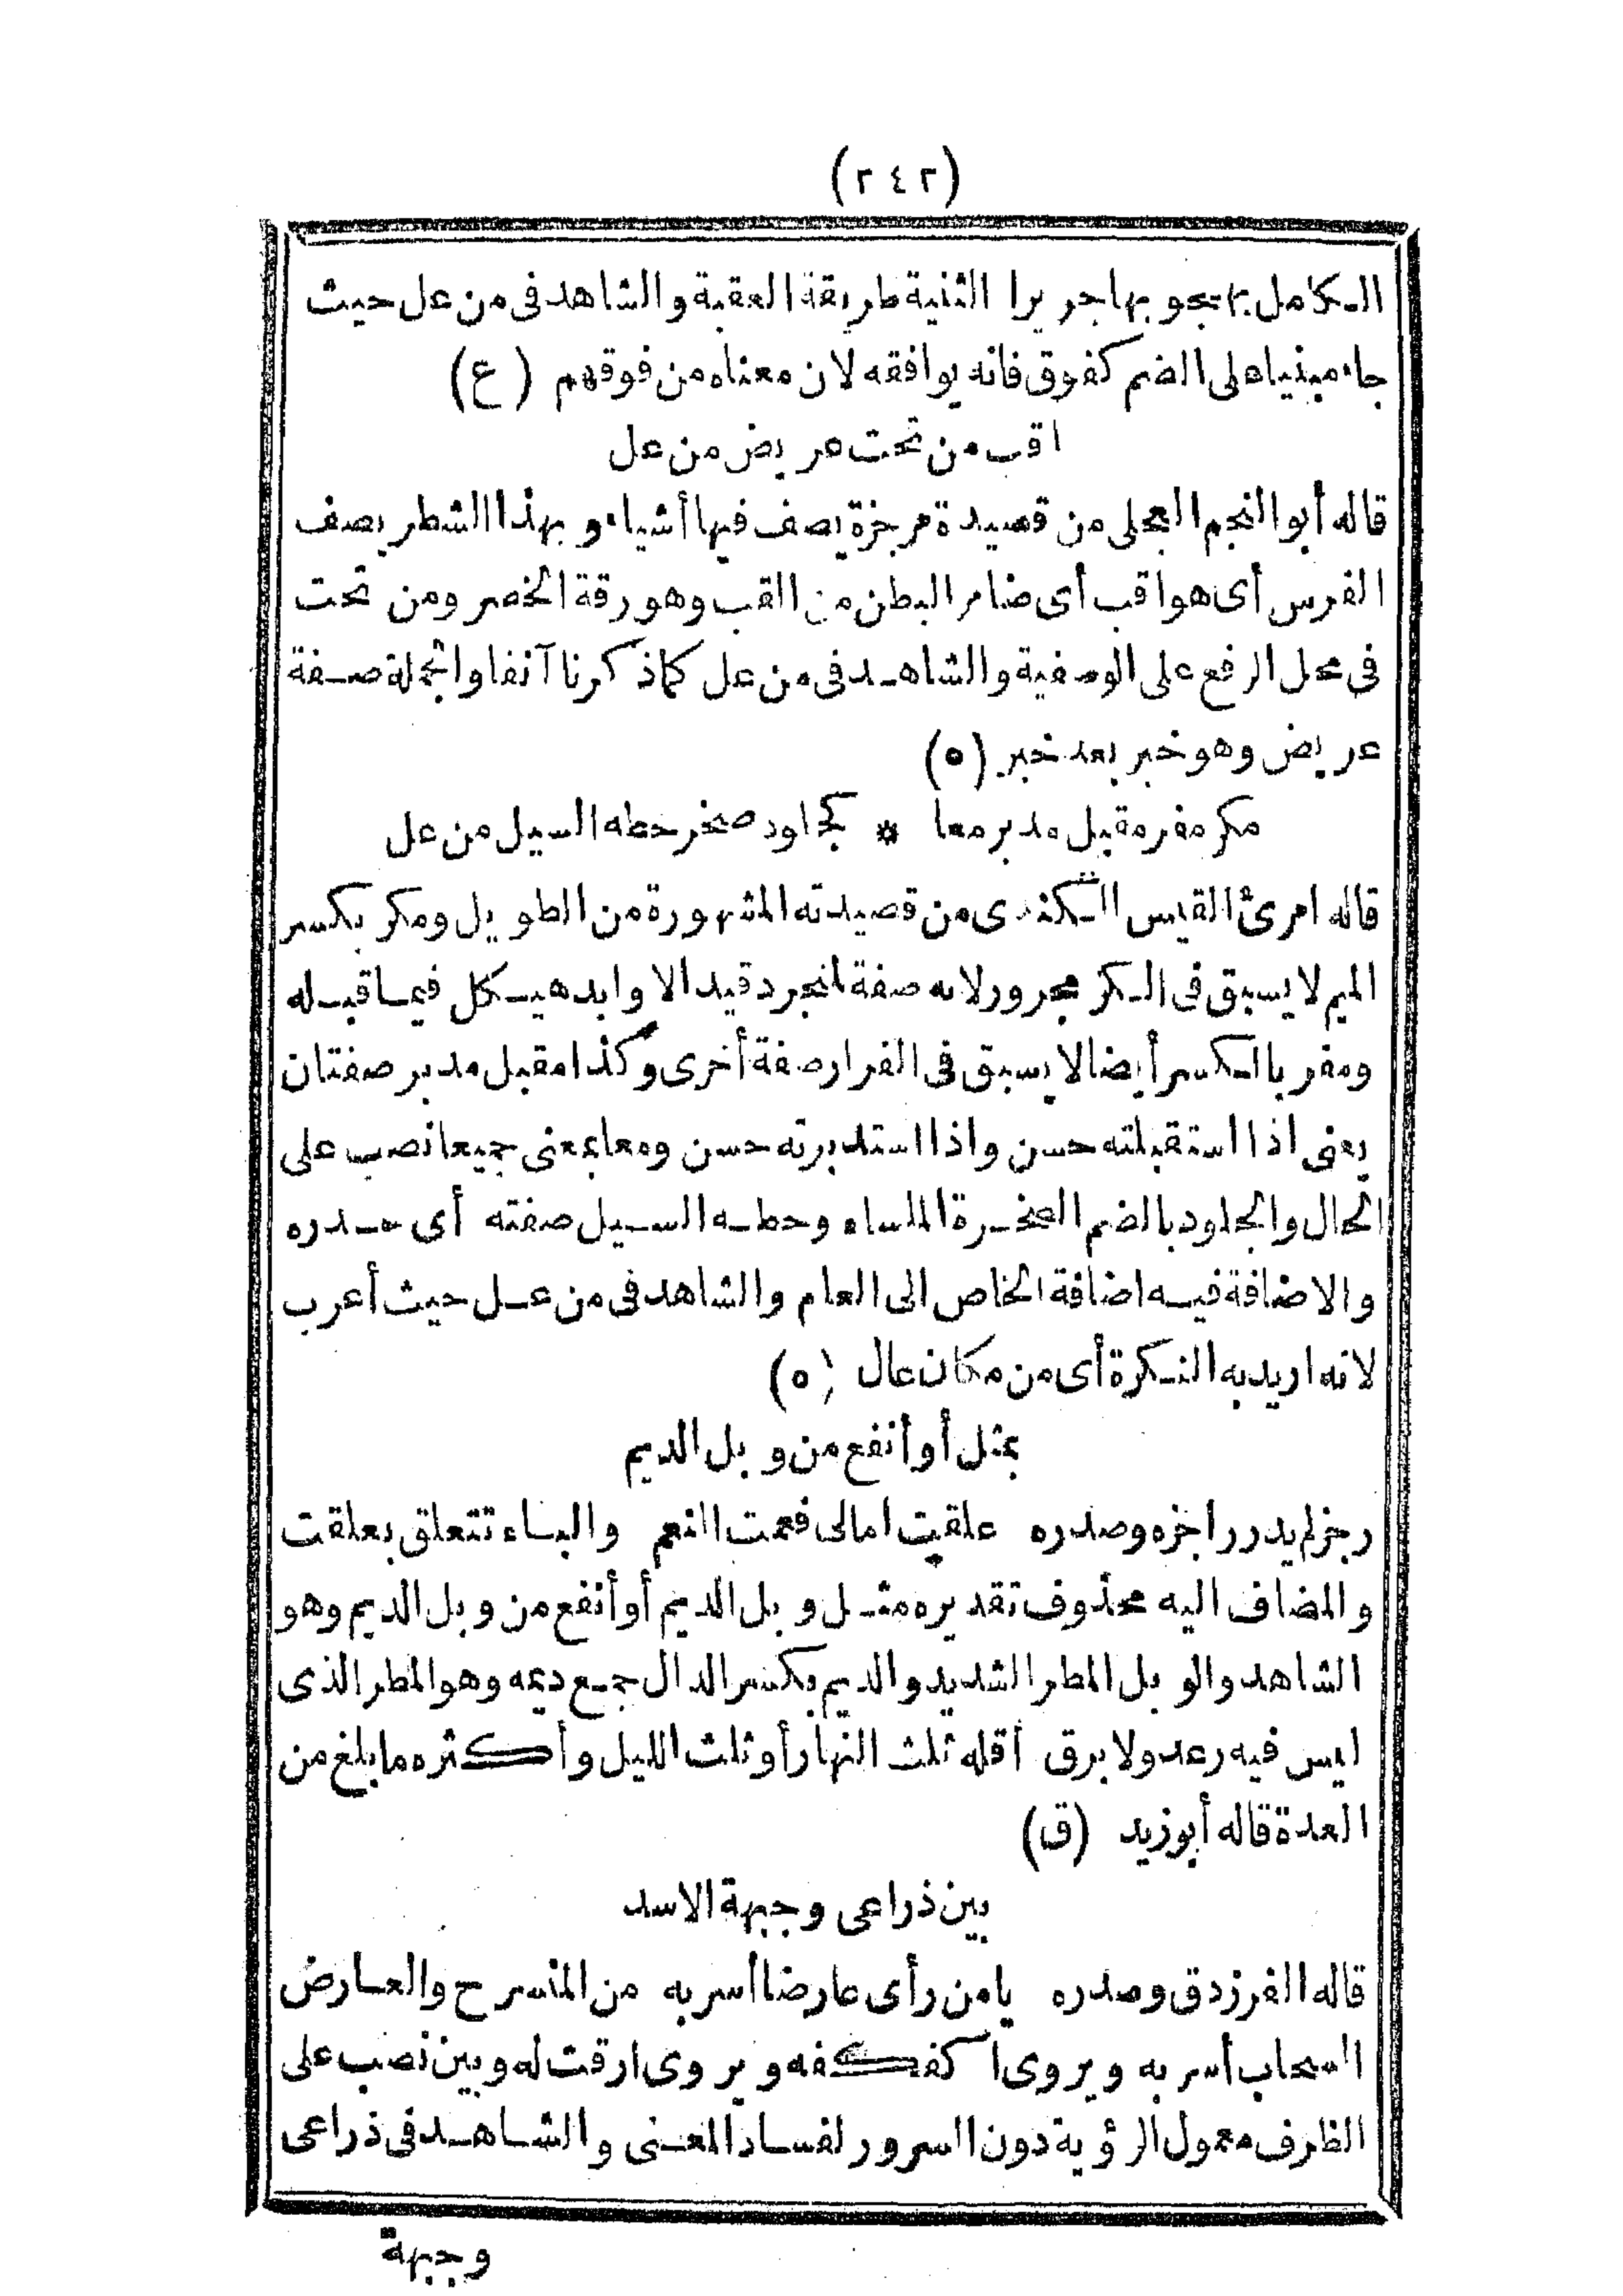 (٢٤٢)
الكامل يهجو بها جريرا الثنية طريقة العقبة والشاهد فى من عل حيث
جاء مبنيا على الضم كفوق فانه يوافقه لان معناه من فوقهم (ع)
اقب من تحت عريض من عل
قاله أبو النجم العجلى من قصيدة مرجزة يصف فيها أشياء و بهذا الشطر يصف
الفرس أى هو اقب أى ضامر البطن من القب وهو رقة الخصر ومن تحت
فى محل الرفع على الوصفية والشاهد فى من عل كما ذكرنا آنفا والجملة صفة
عريض وهو خبر بعد خبر (ه)
مكر مفر مقبل مدبر معا * كجلود صخر حطه السيل من عل
قاله امرئ القيس الكندى من قصيدته المشهورة من الطويل ومكر بكسر
الميم لا يسبق فى الكر مجرور لانه صفة لمنجرد قيد الاوابد هيكل فيما قبله
ومفر بالكسر أيضا لا يسبق فى الفرار صفة أخرى وكذا مقبل مدبر صفتان
يعنى اذا استقبلته حسن واذا استدبرته حسن ومعا بمعنى جميعا نصب على
الحال والجلود بالضم الصخرة الملساء وحطه السيل صفته أى حدره
والاضافة فيه اضافة الخاص الى العام والشاهد فى من عل حيث أعرب
لانه اريد به النكرة أى من مكان عال (ه)
بمثل أو أنفع من وبل الديم
رجز لم يدر راجزه وصدره علقت امالى فعمت النعم والباء تتعلق بعلقت
والمضاف اليه محذوف تقديره مثل وبل الديم أو أنفع من وبل الديم وهو
الشاهد والوبل المطر الشديد والديم بكسر الدال جمع ديمه وهو المطر الذى
ليس فيه رعد ولا برق أقله ثلث النهار أو ثلث الليل وأكثره ما بلغ من
العدة قاله أبو زيد (ق)
بين ذراعى وجبهة الاسد
قاله الفرزدق وصدره يا من رأى عارضا أسر به من المنسرح والعارض
السحاب أسر به ويروى اكفكفه ويروى ارقت له وبين نصب على
الظرف معمول الرؤية دون السرور لفساد المعنى والشاهد فى ذراعى
وجبهة